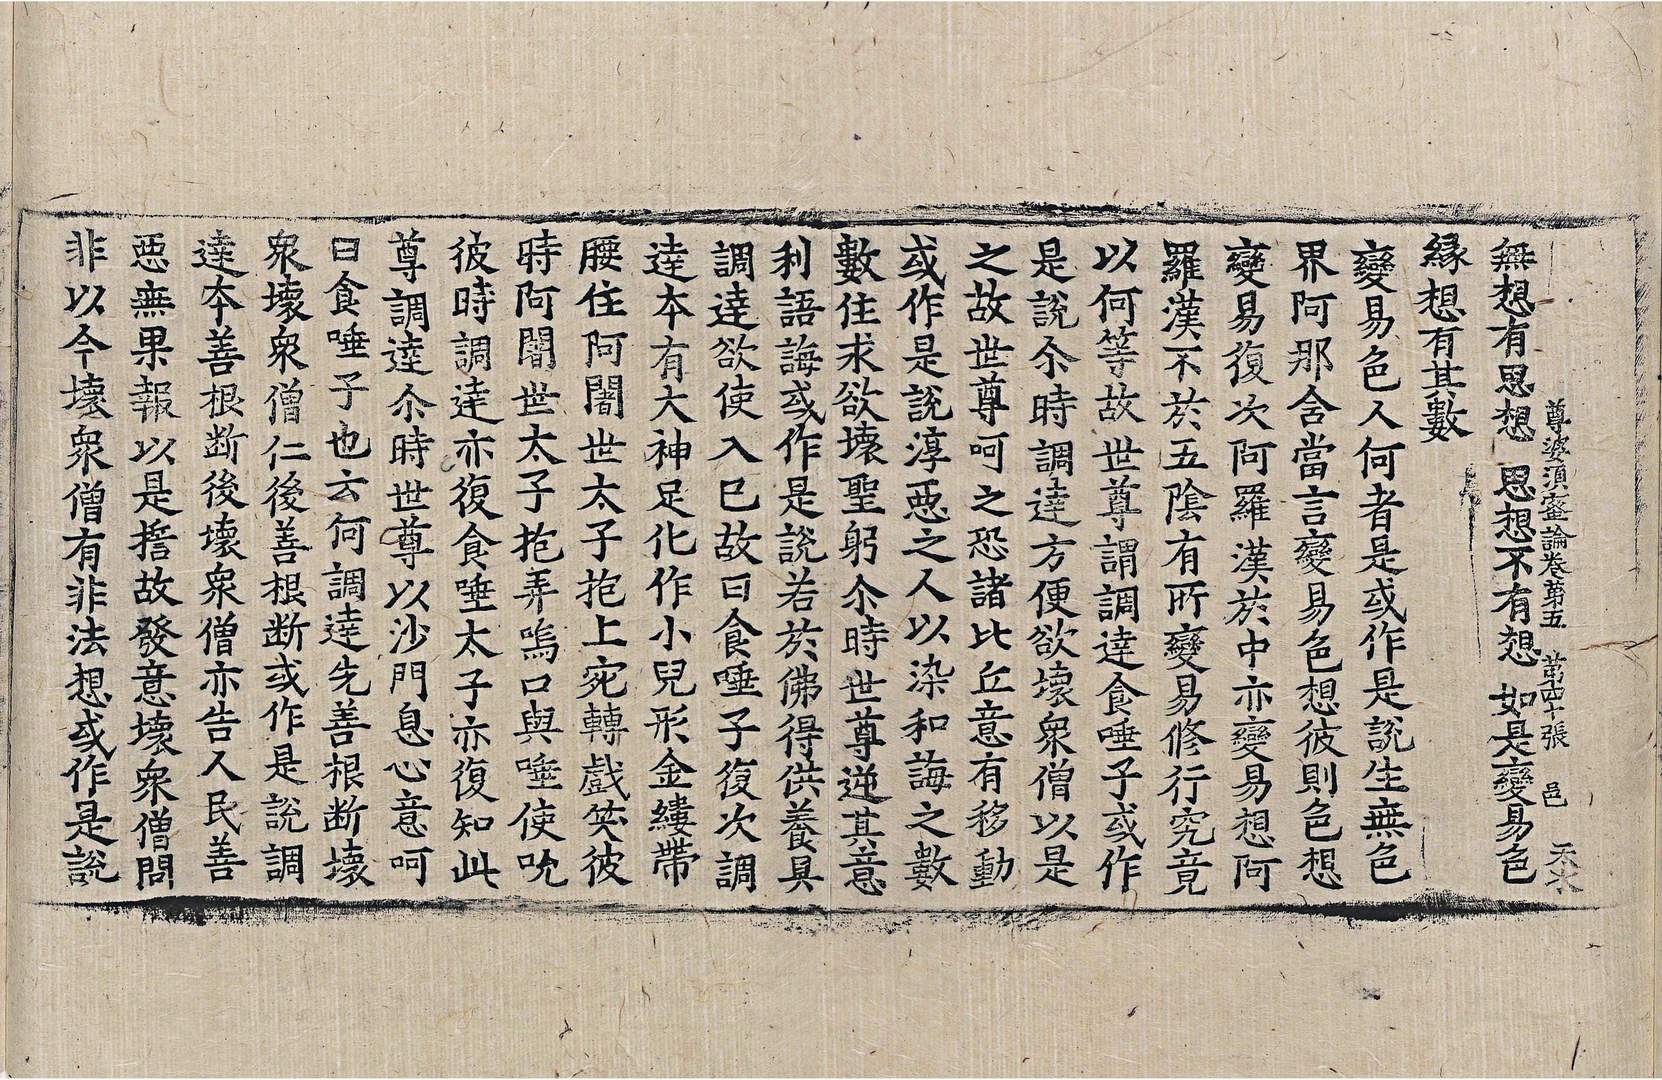 尊婆須蜜論卷第五 第四十張 邑 天水
無想有思想 思想不有想 如是變易色
緣想有其數
變易色人何者是或作是說生無色
界阿那含當言變易色想彼則色想
變易復次阿羅漢於中亦變易想阿
羅漢不於五陰有所變易修行究竟
以何等故世尊謂調達食唾子或作
是說尒時調達方便欲壞衆僧以是
之故世尊呵之恐諸比丘意有移動
或作是說淳惡之人以染和誨之數
數住求欲壞聖躬尒時世尊逆其意
利語誨或作是說若於佛得供養具
調達欲使入已故曰食唾子復次調
達本有大神足化作小兒形金縷帶
腰住阿闍世太子抱上宛轉戲笑彼
時阿闍世太子抱弄嗚口與唾使吮
彼時調達亦復食唾太子亦復知此
尊調達尒時世尊以沙門息心意呵
曰食唾子也云何調達先善根斷壞
衆壞衆僧仁後善根斷或作是說調
達本善根断後壞衆僧亦告人民善
惡無果報以是捨故發意壞衆僧問
非以今壞衆僧有非法想或作是說